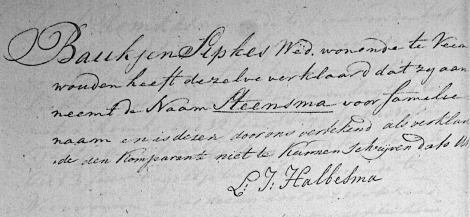 Baukjen Sipkes Wed. wonende te Veen
wouden heeft dezelve verklaard dat zy aan
neemt de Naam Steensma voor familie
naam en is dezen door ons vertekend als verklaar
de den Komparent niet te Kunnen Schrijven dato
L: J: Halbesma